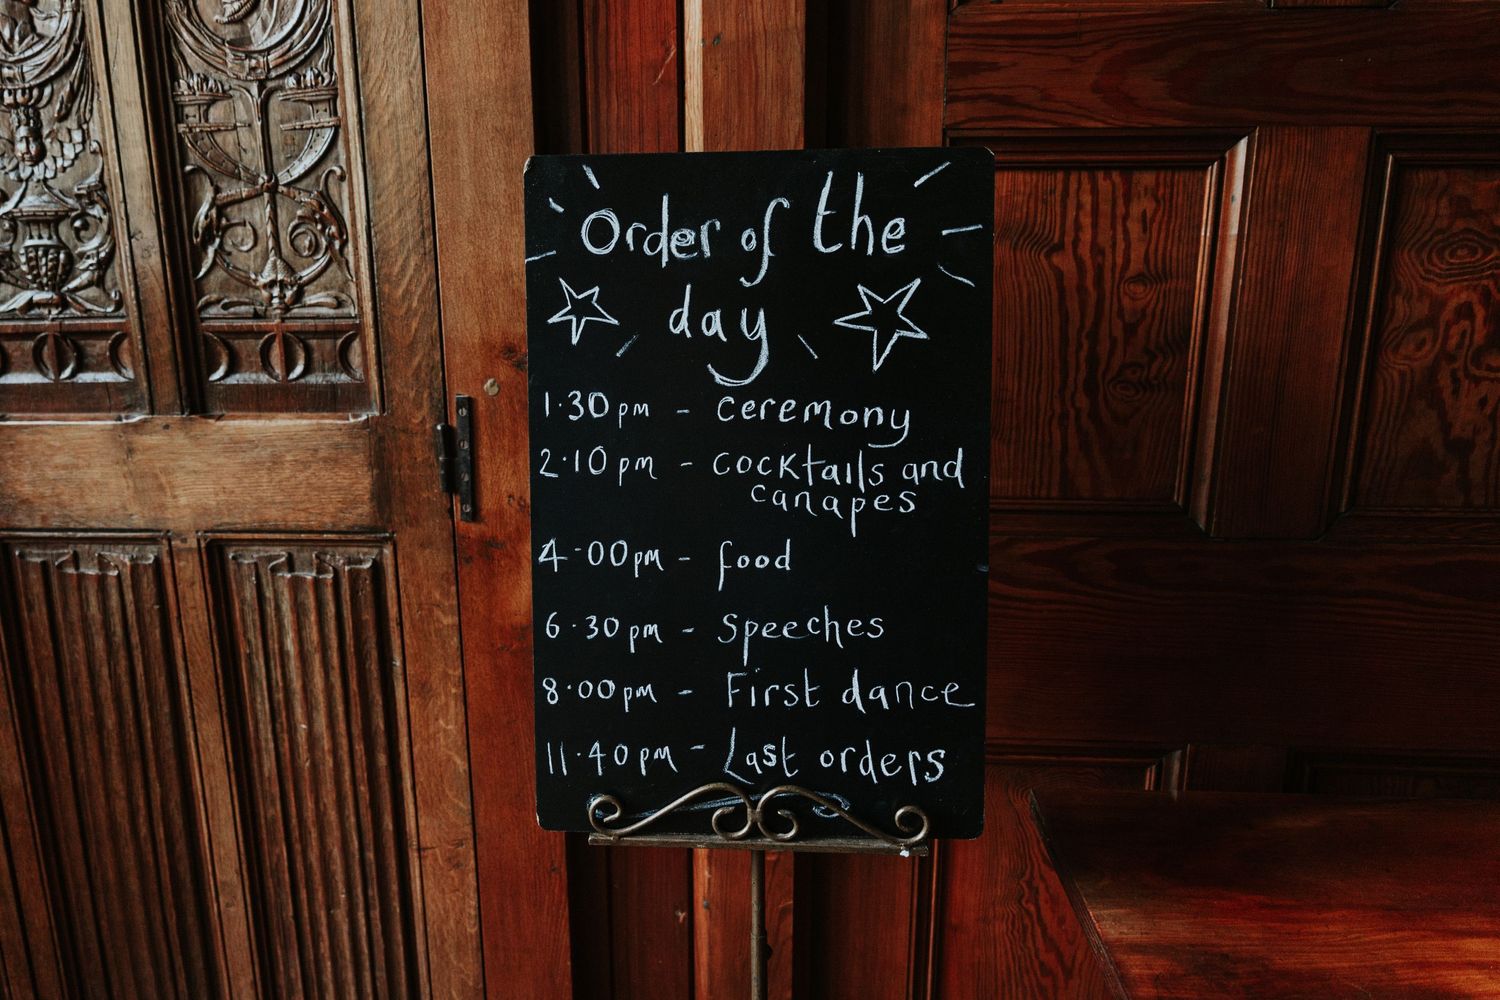 Order of the
day
1.30pm - ceremony
2.10pm - cocktails and
canapes
4-00pm - food
6.30pm - Speeches
8.00pm - First dance
11.40pm - Last orders